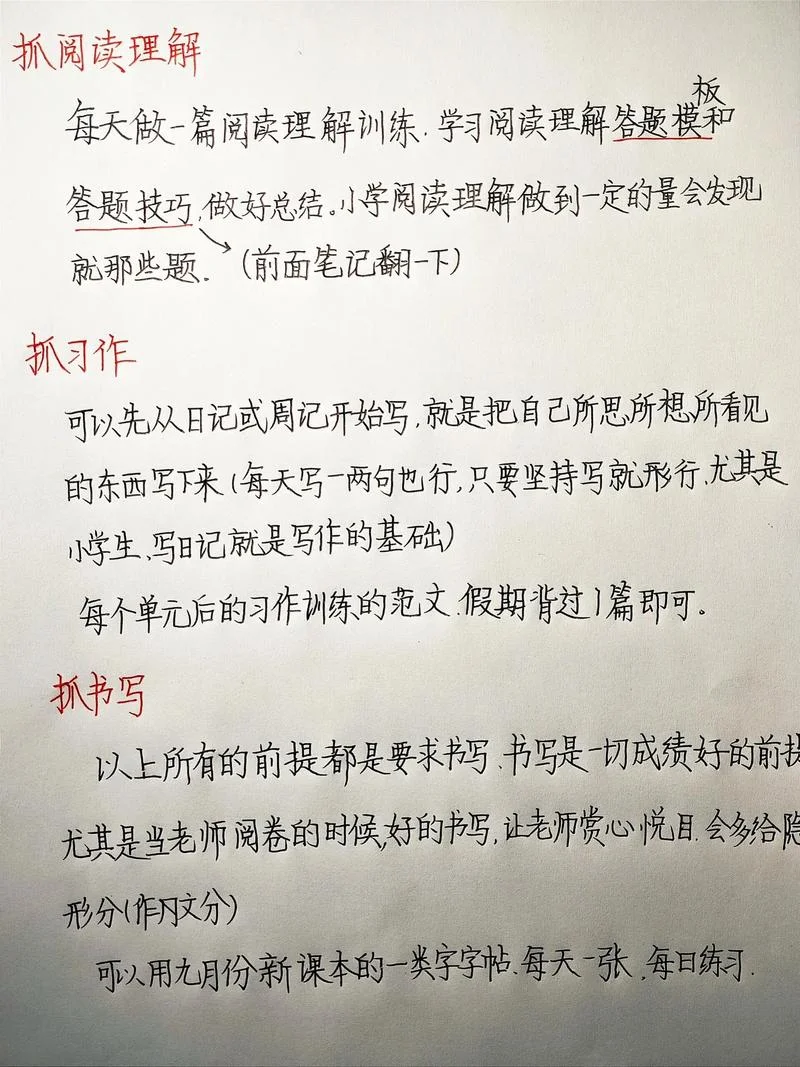 抓阅读理解
每天做一篇阅读理解训练.学习阅读理解答题模板和
答题技巧,做好总结。小学阅读理解做到一定的量会发现
就那些题. (前面笔记翻一下)
抓习作
可以先从日记或周记开始写,就是把自己所思、所想、所看见
的东西写下来(每天写一两句也行,只要坚持写就形行、尤其是
小学生、写日记就是写作的基础)
每个单元后的习作训练的范文.假期背过1篇即可。
抓书写
以上所有的前提都是要求书写.书写是一切成绩好的前提
尤其是当老师阅卷的时候,好的书写,让老师赏心悦目.会多给隐
形分(作文分)
可以用九月份新课本的一类字字帖.每天一张,每日练习.